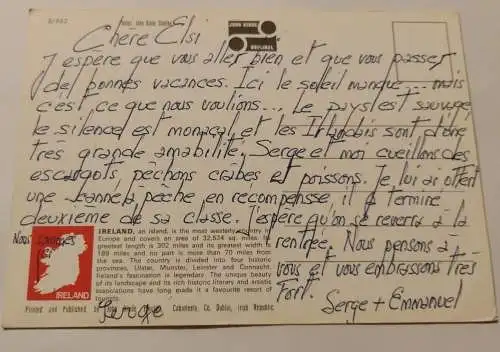 2/942
Photo: John Hinde Studios
JOHN HINDE
ORIGINAL
Chère Elsi
J'espère que vous allez bien et que vous passez
de bonnes vacances. Ici le soleil manque... mais
c'est ce que nous voulions... Le pays est sauvage
le silence est monacal et les Irlandais sont d'une
très grande amabilité. Serge et moi cueillons des
escargots pêchons crabes et poissons. Je lui ai offert
une canne à pêche en récompense, il a terminé
deuxième de sa classe. J'espère qu'on se reverra à la
rentrée. Nous pensons à
vous et vous embrassons très
Fort.
Serge + Emmanuel
Nous
IRELAND
IRELAND, an island, is the most westerly country in
Europe and covers an area of 32,524 sq. miles. Its
greatest length is 302 miles and its greatest width is
189 miles and no part is more than 70 miles from
the sea. The country is divided into four historic
provinces, Ulster, Munster, Leinster and Connacht.
Ireland's fascination is legendary. The unique beauty
of its landscape and its rich historic literary and artistic
associations have long made it a favourite resort of
tourists.
Printed and Published by John Hinde Cabinteely, Co. Dublin, Irish Republic.
Serge